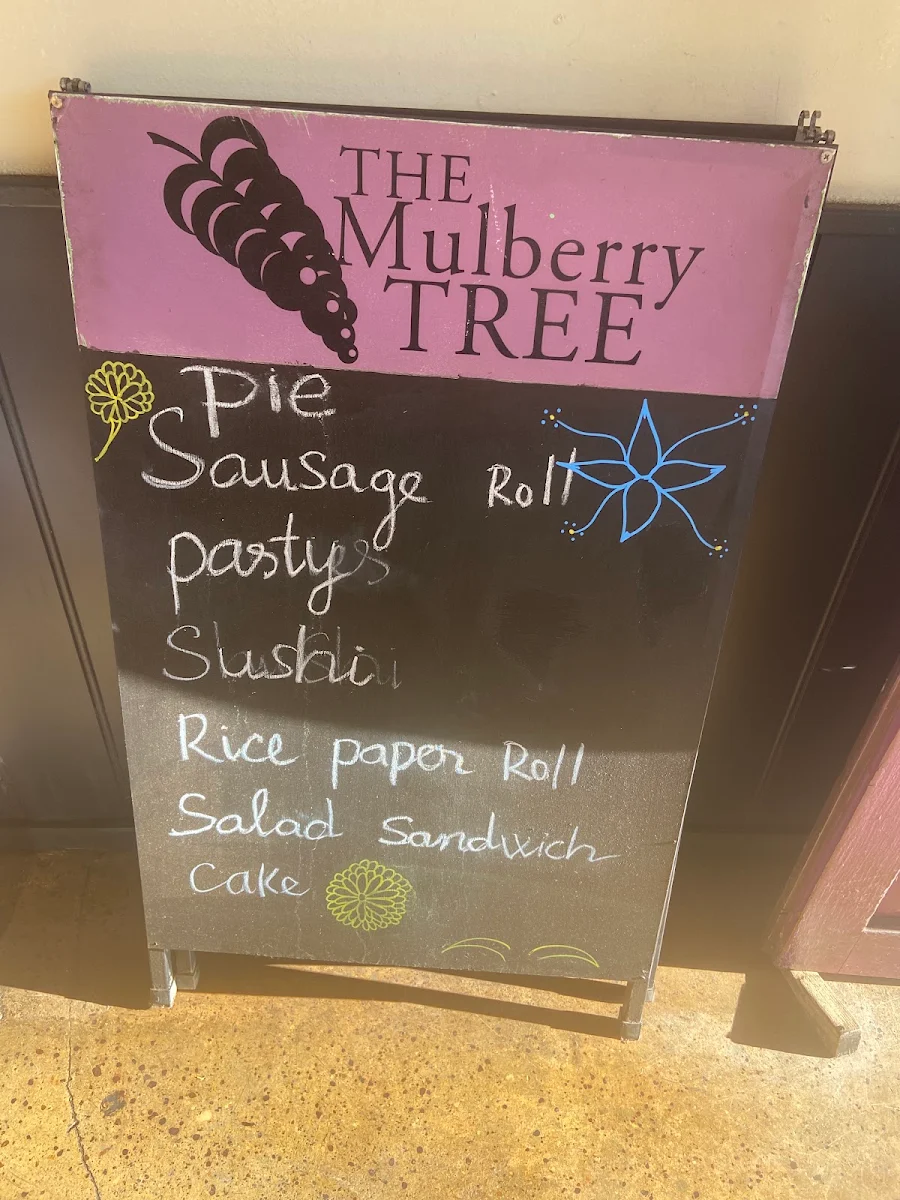 THE
Mulberry
TREE
Pie
Sausage Roll
pasty
Sushi
Rice paper Roll
Salad Sandwich
Cake